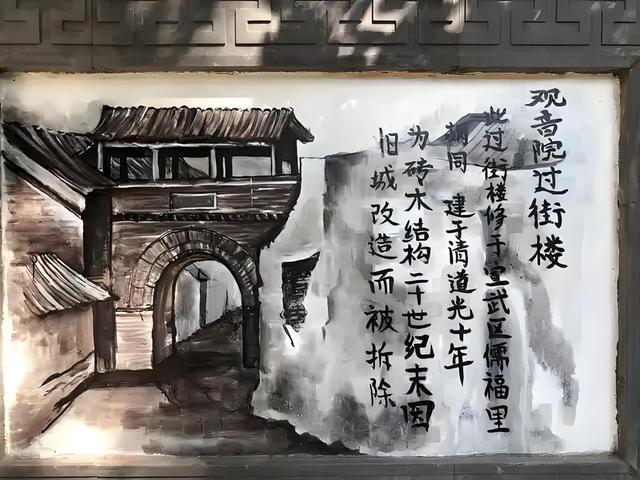 观音院过街楼
此过街楼修于宣武区儒福里
胡同 建于清道光十年
为砖木结构二十世纪末因
旧城改造而被拆除